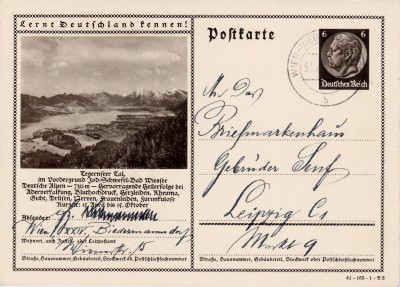 Lernt Deutschland kennen!
Postkarte
6 6
Deutsches Reich
WIEN
Tegernseer Tal,
im Vordergrund Jod-Schwefel-Bad Wiessee
Deutsche Alpen — 730 m — Hervorragende Heilerfolge bei
Aderverkalkung, Bluthochdruck, Herzleiden, Rheuma,
Gicht, Drüsen, Nerven, Frauenleiden, Furunkulose
Kurzeit: 15. April bis 15. Oktober
Absender:
Wien, XXIV, Biedermannsdorf
Wohnort, auch Zustell- oder Leitpostamt
Straße, Hausnummer, Gebäudeteil, Stockwerk od. Postschließfachnummer
An Das
Briefmarkenhaus
Gebrüder Senf
Leipzig C1
Straße, Hausnummer, Gebäudeteil, Stockwerk oder Postschließfachnummer
41-163-1-B3